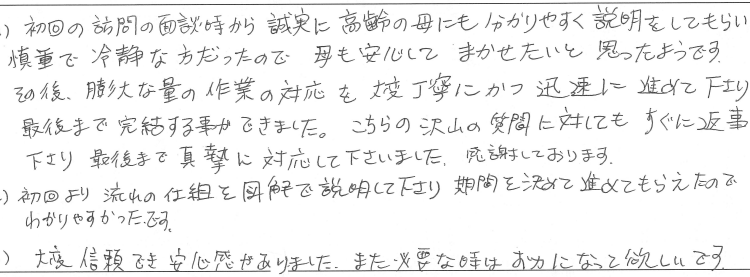 ) 初回の訪問の面談時から 誠実に 高齢の母にも 分かりやすく 説明をしてもらい
慎重で 冷静な方だったので 母も安心して まかせたいと 思ったようです。
その後、膨大な量の 作業の対応を 大変丁寧にかつ 迅速に 進めて下さり
最後まで 完結する事ができました。 こちらの沢山の質問に対しても すぐに返事
下さり 最後まで 真摯に 対応して下さいました。 感謝しております。
) 初回より 流れの仕組を 図解で説明して下さり 期間を決めて進めてもらえたので
わかりやすかったです。
) 大変 信頼でき 安心感がありました。また必要な時は お力になって欲しいです。